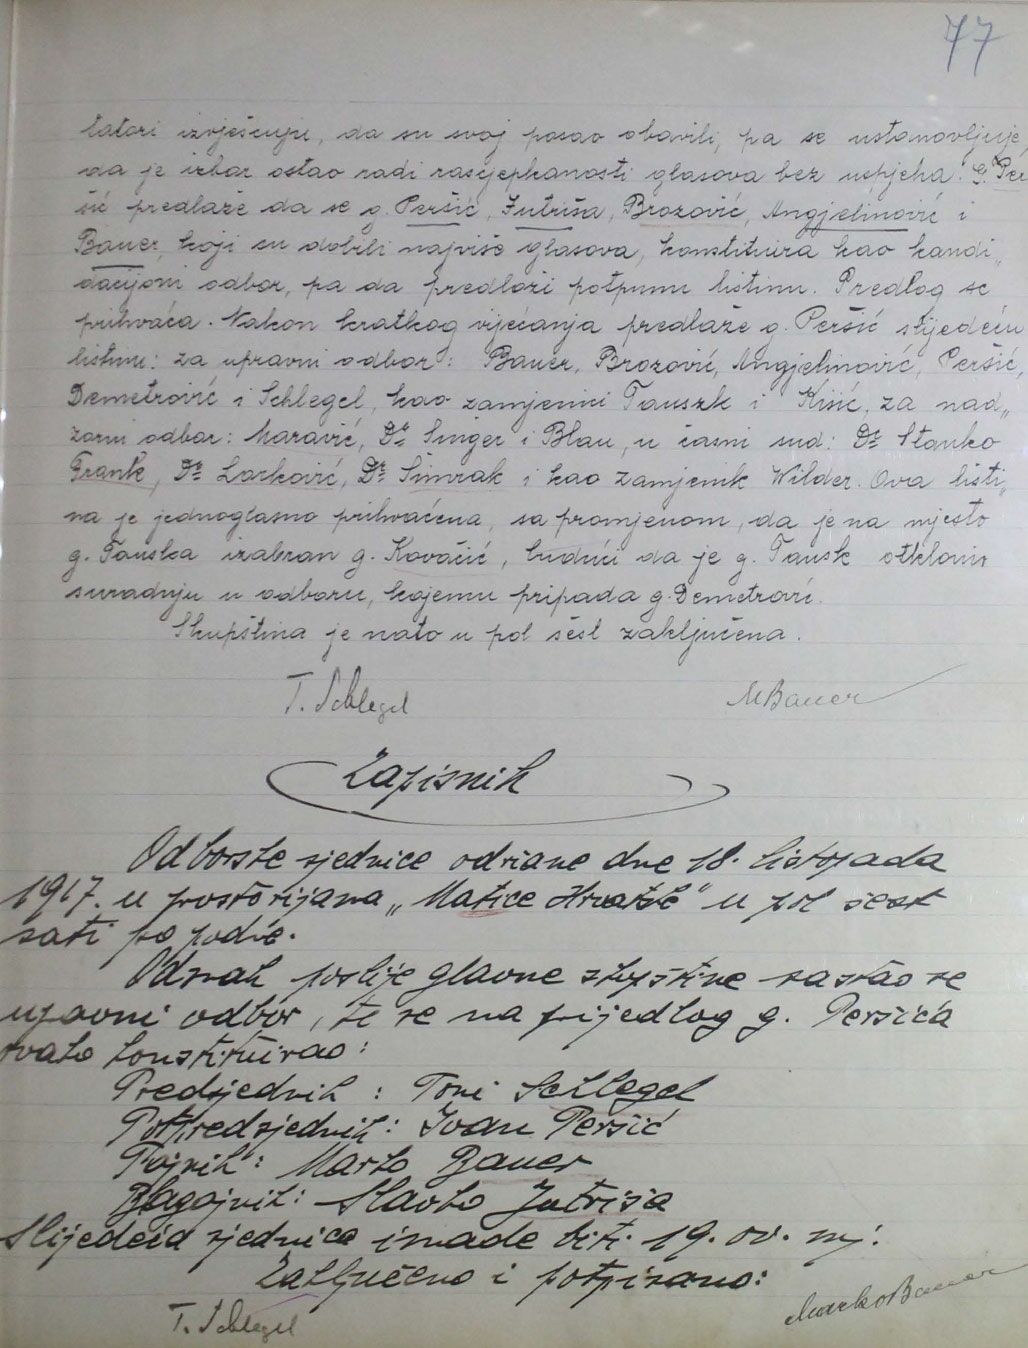 77
tatori izvješćuju, da su svoj posao obavili, pa se ustanovljuje,
da je izbor ostao radi rascjepkanosti glasova bez uspjeha. G. Per
šić predlaže da se g. Peršić, Jutriša, Brozović, Angjelinović i
Bauer, koji su dobili najviše glasova, konstituira kao kandi„
dacijoni odbor, pa da predloži potpunu listinu. Predlog se
prihvaća. Nakon kratkog vijećanja predlaže g. Peršić slijedeću
listinu: za upravni odbor: Bauer, Brozović, Angjelinović, Peršić,
Demetrović i Schlegel, kao zamjenici Tauszk i Kišić, za nad„
zorni odbor: Maravić, Dr Singer i Blau, u časni sud: Dr Stanko
Frank, Dr Lorković, Dr Šimrak i kao zamjenik Wilder. Ova listi„
na je jednoglasno prihvaćena, sa promjenom, da je na mjesto
g. Tauska izabran g. Kovačić, budući da je g. Tausk otklonio
suradnju u odboru, kojemu pripada g. Demetrović.
Skupština je nato u pol šest zaključena.
T. Schlegel MBauer
Zapisnik
Odborske sjednice održane dne 18. listopada
1917. u prostorijama „Matice Hrvatske" u pol šest
sati po podne.
Odmah poslije glavne skupštine sastao se
upravni odbor, te se na prijedlog g. Peršića
ovako konstituirao:
Predsjednik : Toni Schlegel
Potpredsjednik: Ivan Peršić
Tajnik: Marko Bauer
Blagajnik: Slavko Jutriša
Slijedeća sjednica imade biti 19. ov. mj.
Zaključeno i potpisano:
T. Schlegel Marko Bauer